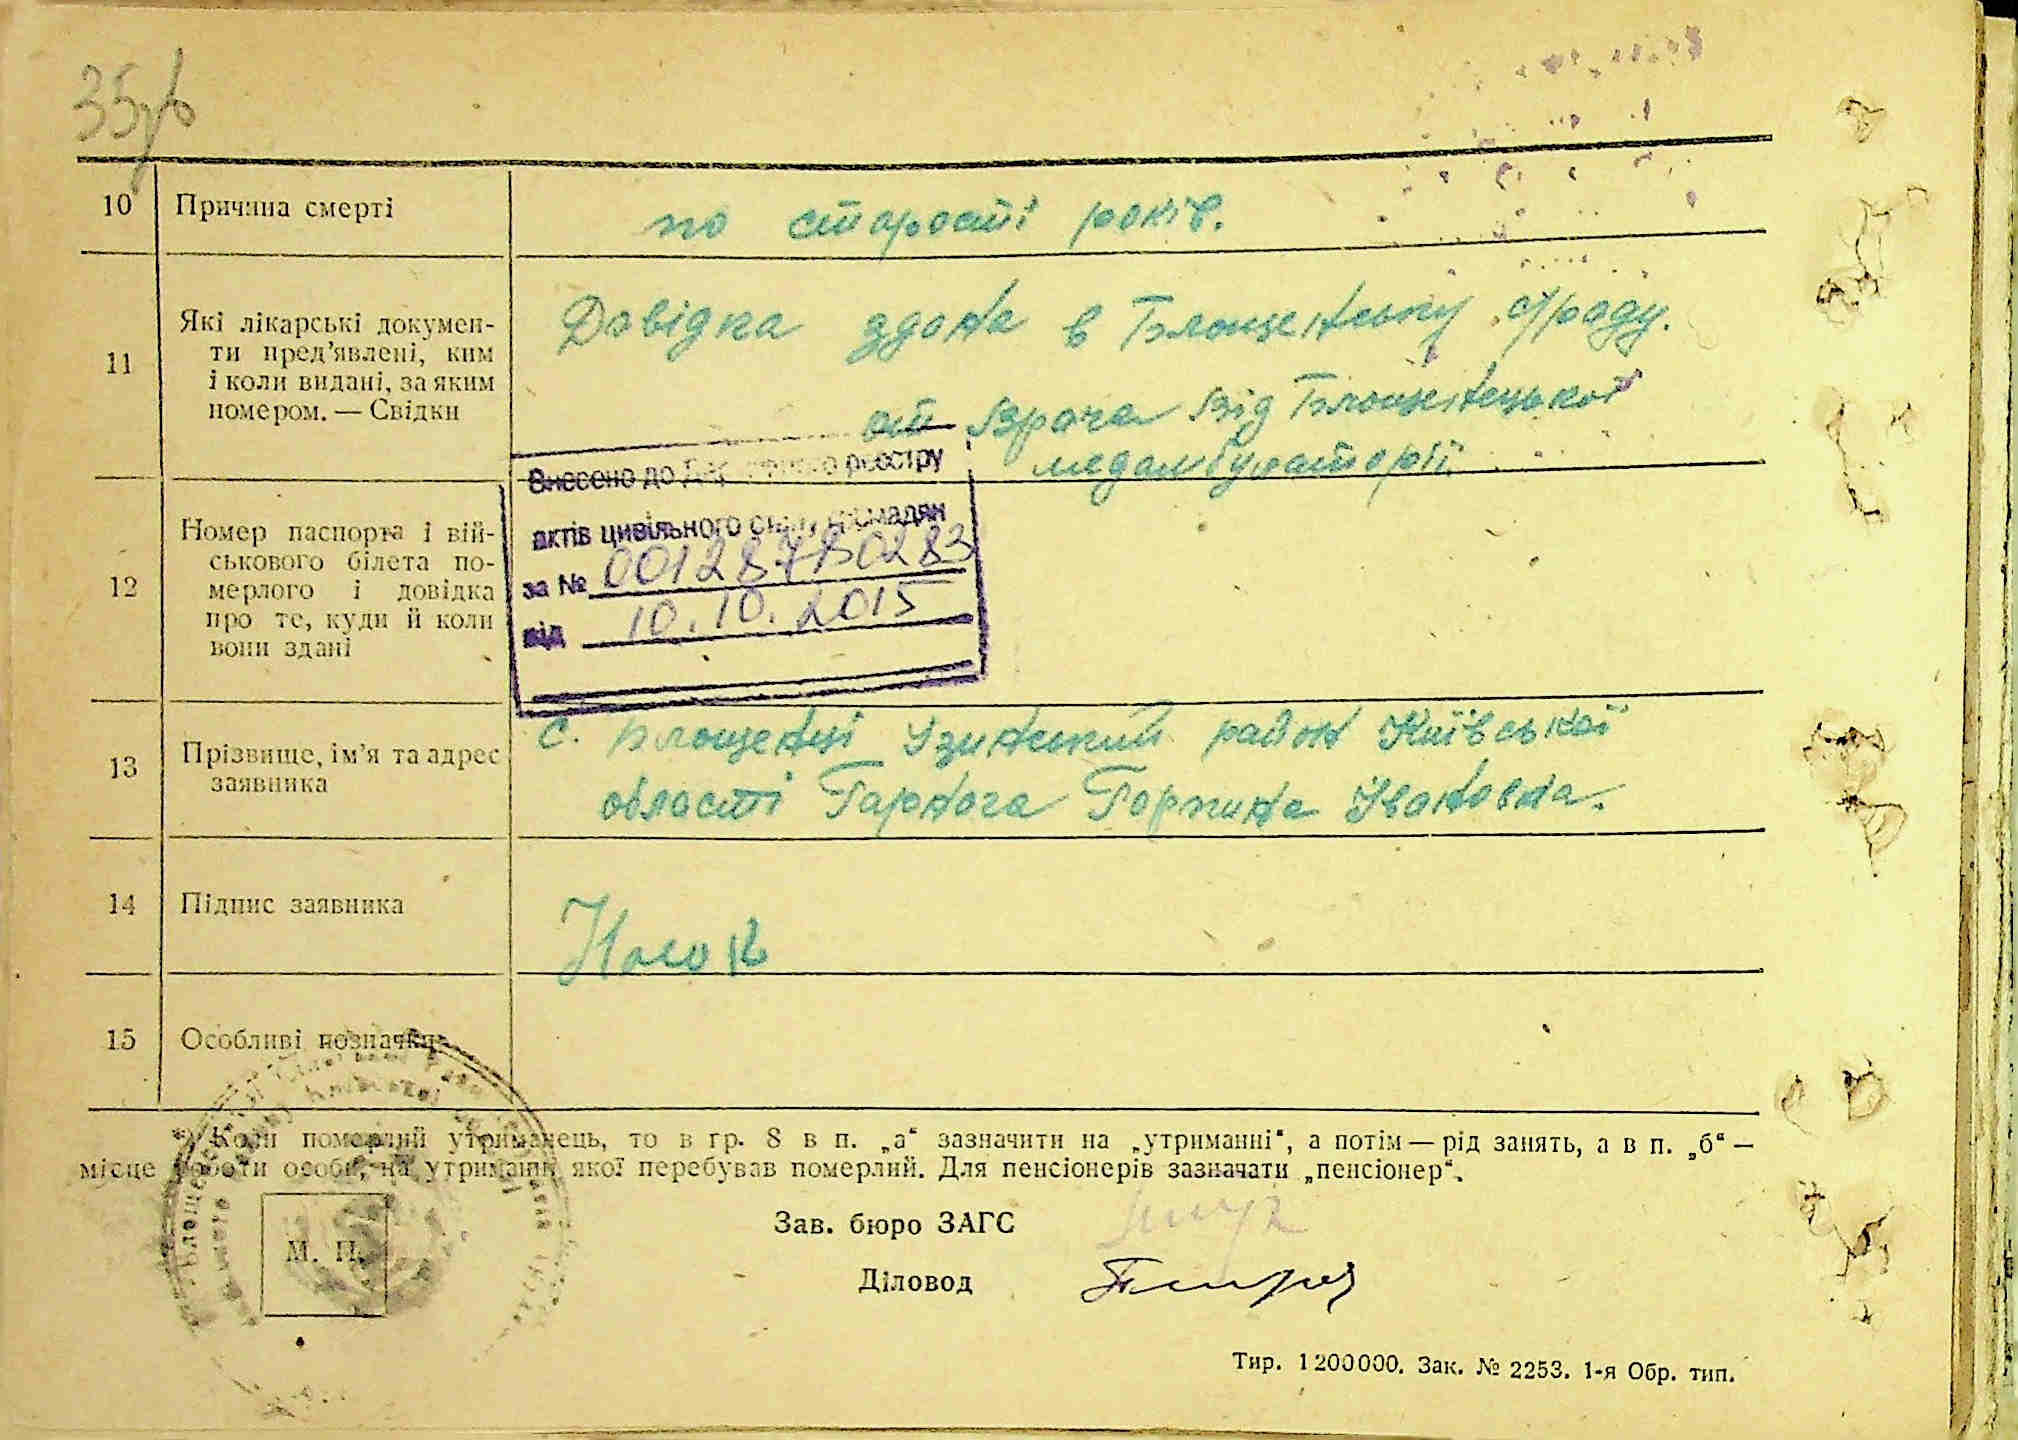 10 Причина смерті
по старости років.
11 Які лікарські докумен-
ти пред'явлені, ким
і коли видані, за яким
номером. — Свідки
Довідка здана в
від
медамбулаторії
12 Номер паспорта і вій-
ськового білета по-
мерлого і довідка
про те, куди й коли
вони здані
Внесено до реєстру
актів цивільного стану громадян
за № 00128780283
від 10.10.2015
13 Прізвище, ім'я та адрес
заявника
с. Блощенці Узинський район Київської
області Горпина Івановна.
14 Підпис заявника
15 Особливі позначки
*) Коли померлий утриманець, то в гр. 8 в п. „а“ зазначити на „утриманні“, а потім — рід занять, а в п. „б“ —
місце роботи особи, на утриманні якої перебував померлий. Для пенсіонерів зазначати „пенсіонер“.
М. П.
Зав. бюро ЗАГС
Діловод
Тир. 1200000. Зак. № 2253. 1-я Обр. тип.